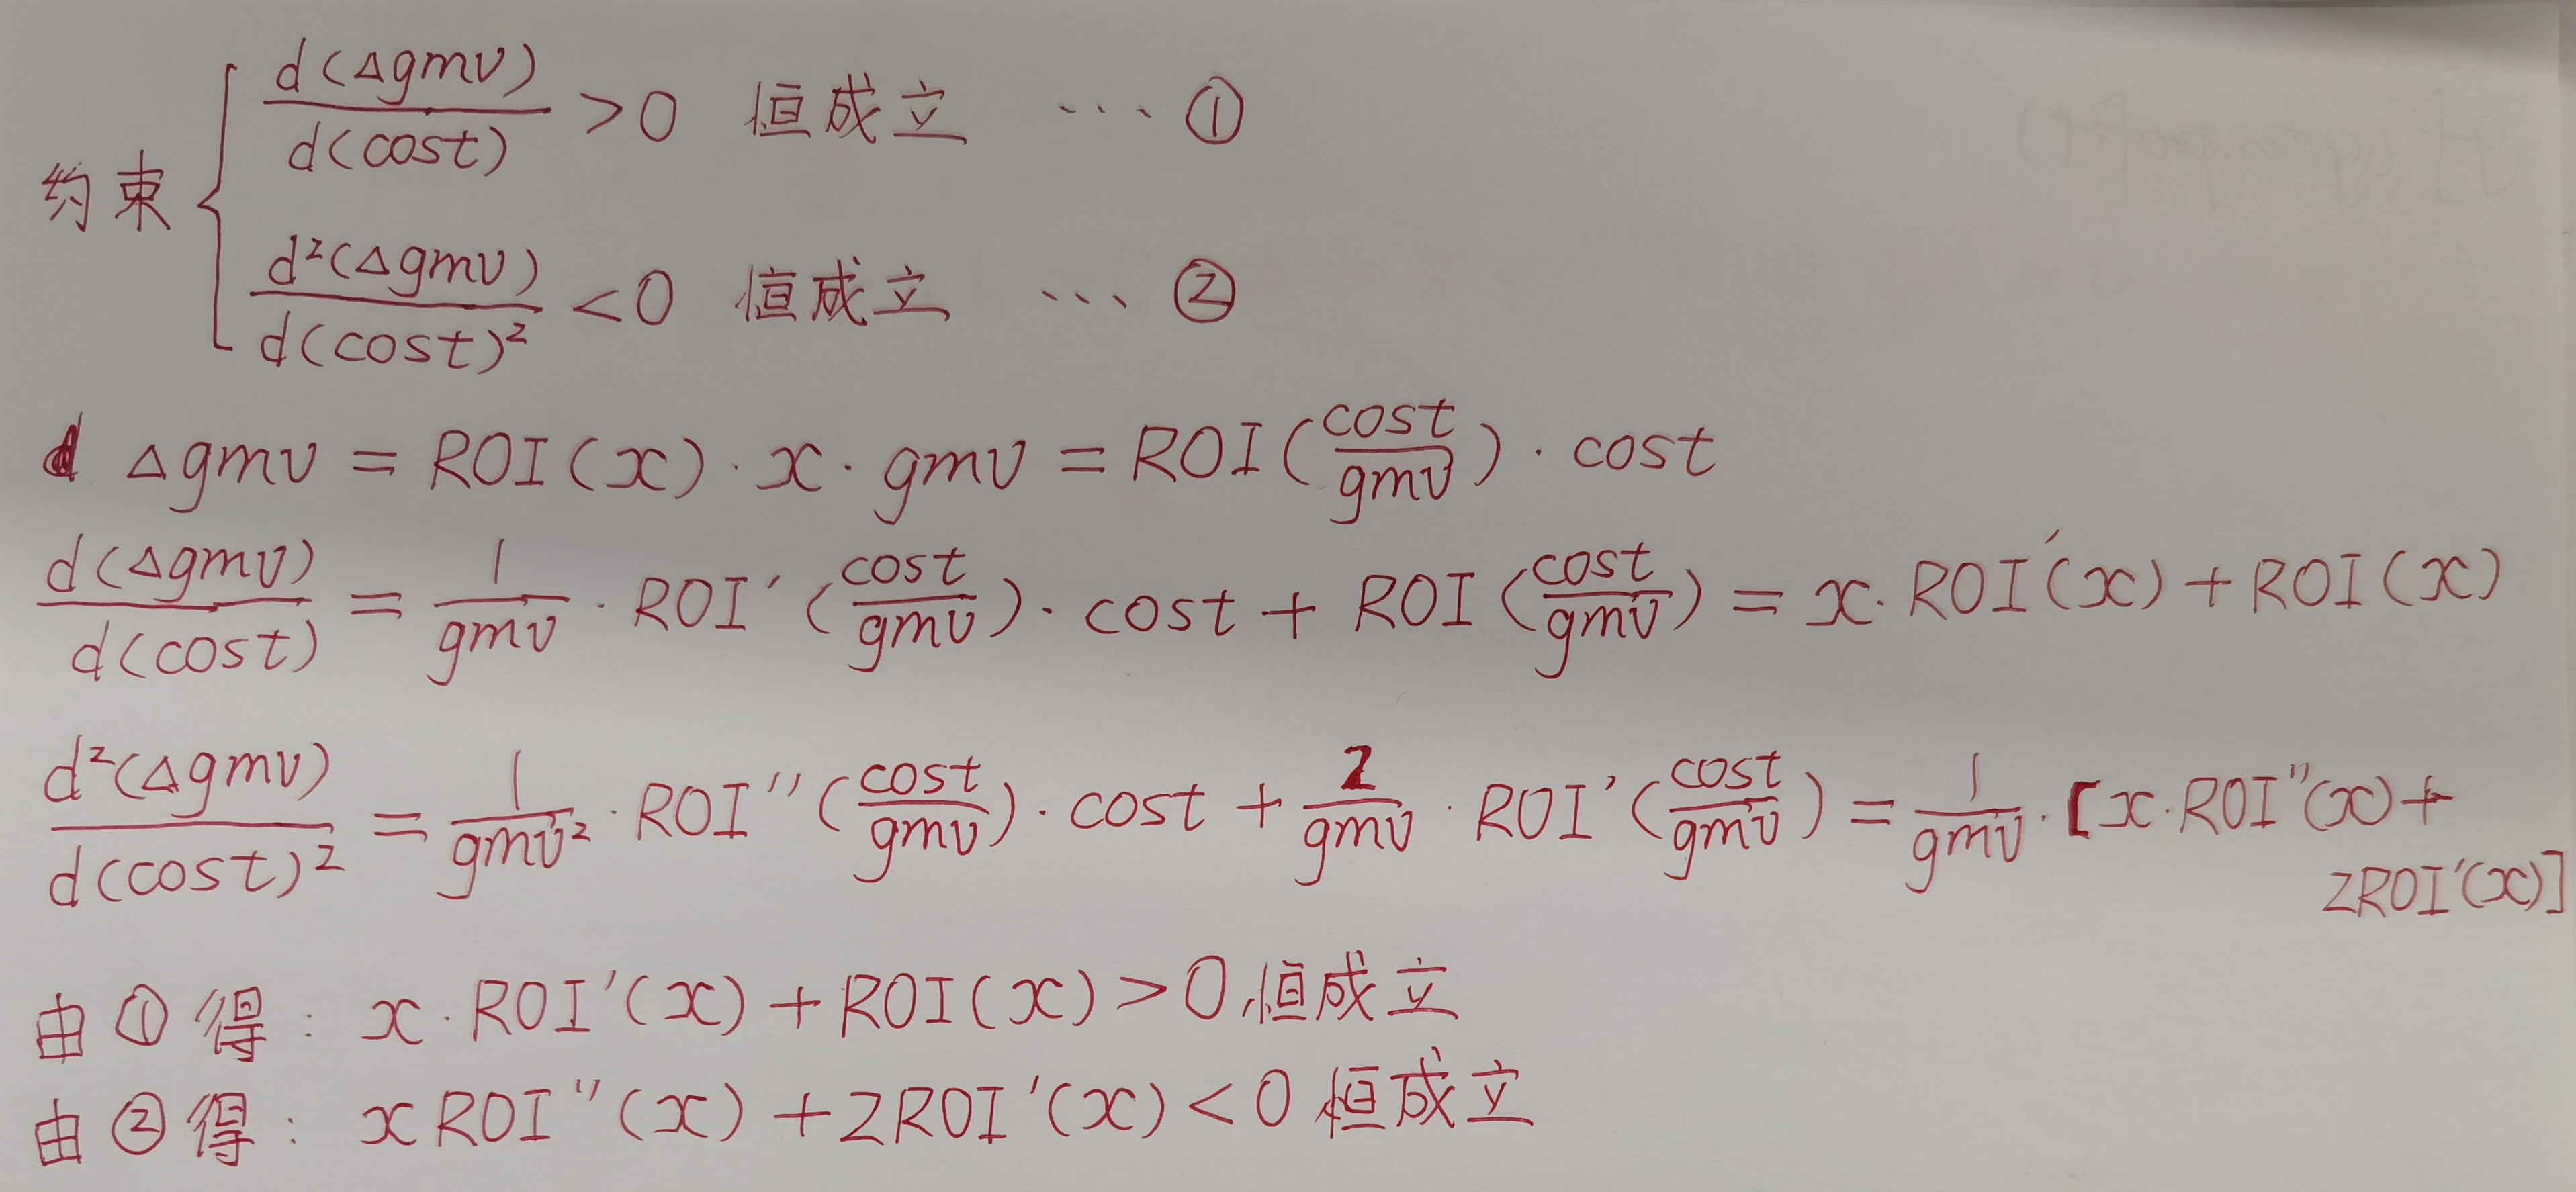 约束 { d(Δgmv)/d(cost) > 0 恒成立 ... ①
d²(Δgmv)/d(cost)² < 0 恒成立 ... ②
d Δgmv = ROI(x) · x · gmv = ROI(cost/gmv) · cost
d(Δgmv)/d(cost) = 1/gmv · ROI′(cost/gmv) · cost + ROI(cost/gmv) = x · ROI′(x) + ROI(x)
d²(Δgmv)/d(cost)² = 1/gmv² · ROI″(cost/gmv) · cost + 2/gmv · ROI′(cost/gmv) = 1/gmv · [x · ROI″(x) +
2ROI′(x)]
由①得: x · ROI′(x) + ROI(x) > 0 恒成立
由②得: x ROI″(x) + 2ROI′(x) < 0 恒成立